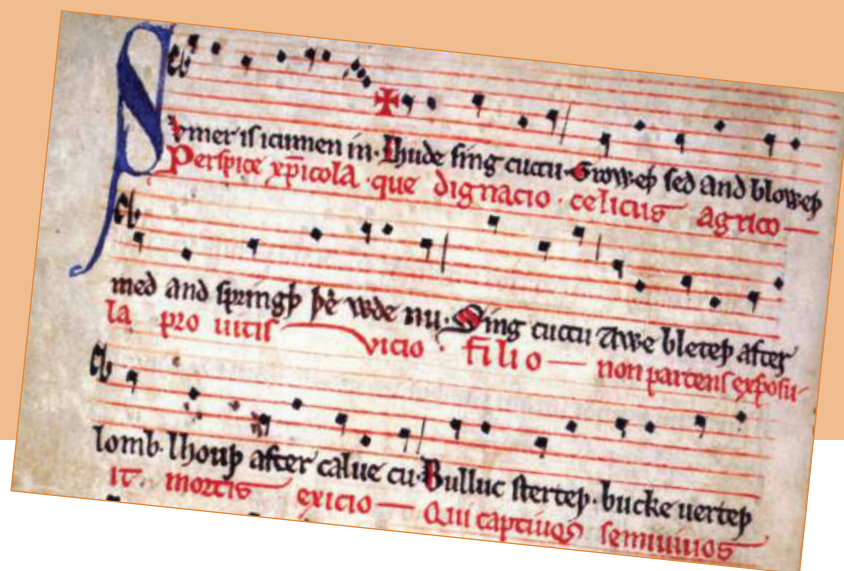 Sumer is icumen in· Lhude sing cuccu· Groweþ sed and bloweþ
Perspice xp̄icola· que dignacio· celicus agrico—
med and springþ þe wde nu· Sing cuccu Awe bleteþ after
la pro uitis vicio· filio— non parcens exposu-
lomb· lhouþ after calue cu· Bulluc sterteþ· bucke uerteþ
it· mortis exicio— Qui captiuos semiuiuos